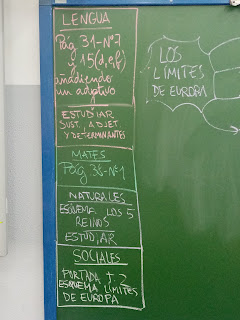 LENGUA
Pág 31-Nº7
y 15(d,e,f)
añadiendo
un adjetivo
ESTUDIAR
SUST, ADJET
Y DETERMINANTES
MATES
Pág 36-Nº1
NATURALES
ESQUEMA LOS 5
REINOS
ESTUDIAR
SOCIALES
PORTADA T. 2
ESQUEMA LÍMITES
DE EUROPA
LOS
LÍMITES
DE EUROPA